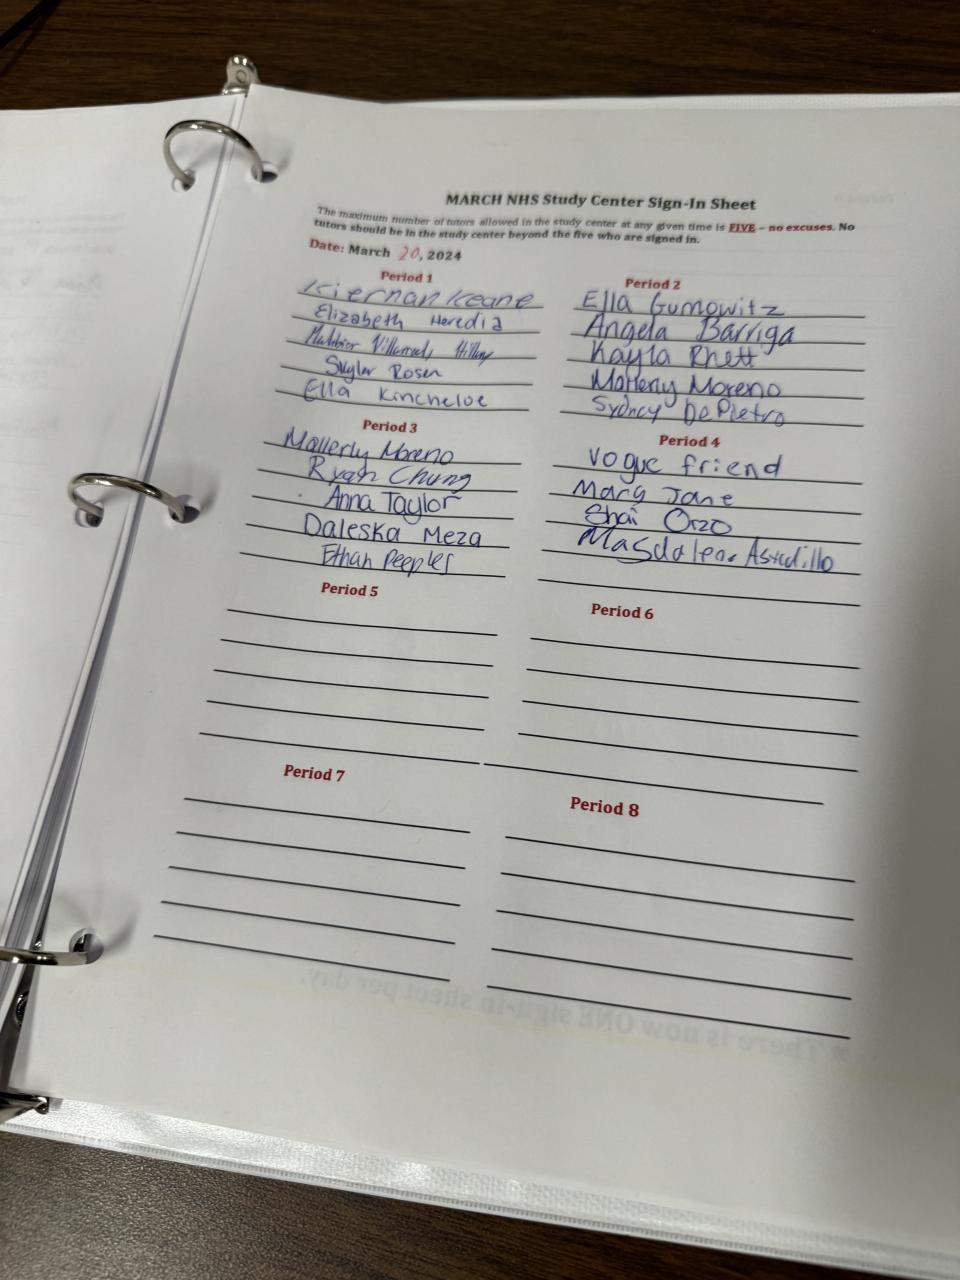 MARCH NHS Study Center Sign-In Sheet
The maximum number of tutors allowed in the study center at any given time is FIVE – no excuses. No
tutors should be in the study center beyond the five who are signed in.
Date: March 20, 2024
Period 1
Kiernan Keane
Elizabeth Heredia
Hillary
Skylar Rosen
Ella Kincheloe
Period 2
Ella Gumowitz
Angela Barriga
Kayla Rhett
Mallerly Moreno
Sydney DePietro
Period 3
Mallerly Moreno
Ryan Chung
Anna Taylor
Daleska Meza
Ethan Peeples
Period 4
Vogue friend
Mary Jane
Shai Orzo
Magdalena Astudillo
Period 5
Period 6
Period 7
Period 8
* There is now ONE sign-in sheet per day.